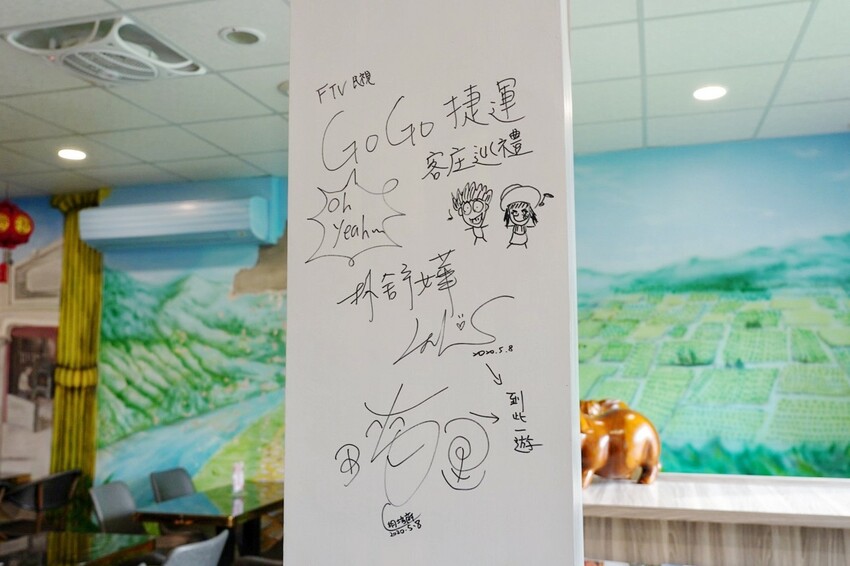 FTV 民視
GoGo 捷運
客庄巡禮
oh
yeah~
林舒嬅
2020.5.8
到此一遊
2020.5.8